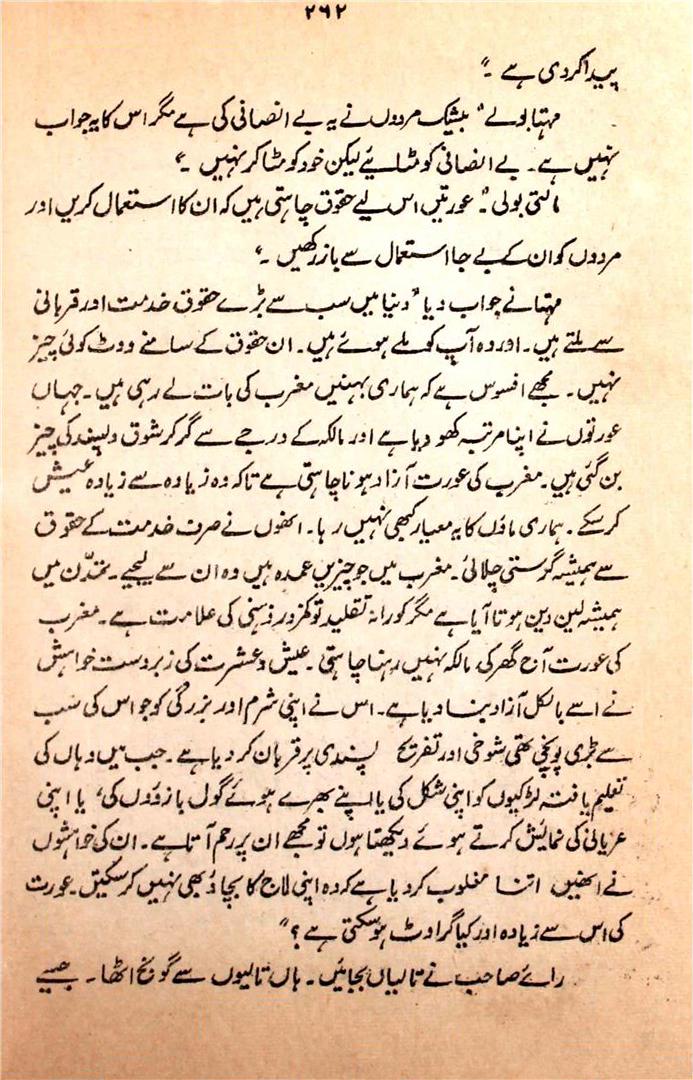 ۲۶۲
پیدا کر دی ہے ۔"
مہتا بولے" بیشک مردوں نے یہ بے انصافی کی ہے مگر اس کا یہ جواب
نہیں ہے۔ بے انصافی کو مٹائیے لیکن خود کو مٹا کر نہیں ۔"
مالتی بولی۔" عورتیں اس لیے حقوق چاہتی ہیں کہ ان کا استعمال کریں اور
مردوں کو ان کے بے جا استعمال سے باز رکھیں ۔"
مہتا نے جواب دیا" دنیا میں سب سے بڑے حقوق خدمت اور قربانی
سے ملتے ہیں۔ اور وہ آپ کو ملے ہوئے ہیں۔ ان حقوق کے سامنے ووٹ کوئی چیز
نہیں ۔ مجھے افسوس ہے کہ ہماری بہنیں مغرب کی بات لے رہی ہیں۔ جہاں
عورتوں نے اپنا مرتبہ کھو دیا ہے اور مالکہ کے درجے سے گر کر شوق و پسند کی چیز
بن گئی ہیں۔ مغرب کی عورت آزاد ہونا چاہتی ہے تاکہ وہ زیادہ سے زیادہ عیش
کر سکے ۔ ہماری ماؤں کا یہ معیار کبھی نہیں رہا۔ انھوں نے صرف خدمت کے حقوق
سے ہمیشہ گرستی چلائی۔ مغرب میں جو چیزیں عمدہ ہیں وہ ان سے لیجیے۔ تمدّن میں
ہمیشہ لین دین ہوتا آیا ہے مگر کورانہ تقلید تو کمزور ذہنی کی علامت ہے ۔ مغرب
کی عورت آج گھر کی مالکہ نہیں رہنا چاہتی ۔ عیش و عشرت کی زبردست خواہش
نے اسے بالکل آزاد بنا دیا ہے۔ اس نے اپنی شرم اور بزرگی کو جو اس کی سب
سے بڑی پونجی تھی شوخی اور تفریح پسندی پر قربان کر دیا ہے ۔ جب میں وہاں کی
تعلیم یافتہ لڑکیوں کو اپنی شکل کی یا اپنے بھرے ہوئے گول بازوؤں کی، یا اپنی
عریانی کی نمائش کرتے ہوئے دیکھتا ہوں تو مجھے ان پر رحم آتا ہے۔ ان کی خواہشوں
نے انھیں اتنا مغلوب کر دیا ہے کہ وہ اپنی لاج کا بچاؤ بھی نہیں کر سکتیں۔ عورت
کی اس سے زیادہ اور کیا گراوٹ ہو سکتی ہے ؟"
رائے صاحب نے تالیاں بجائیں ۔ ہال تالیوں سے گونج اٹھا ۔ جیسے